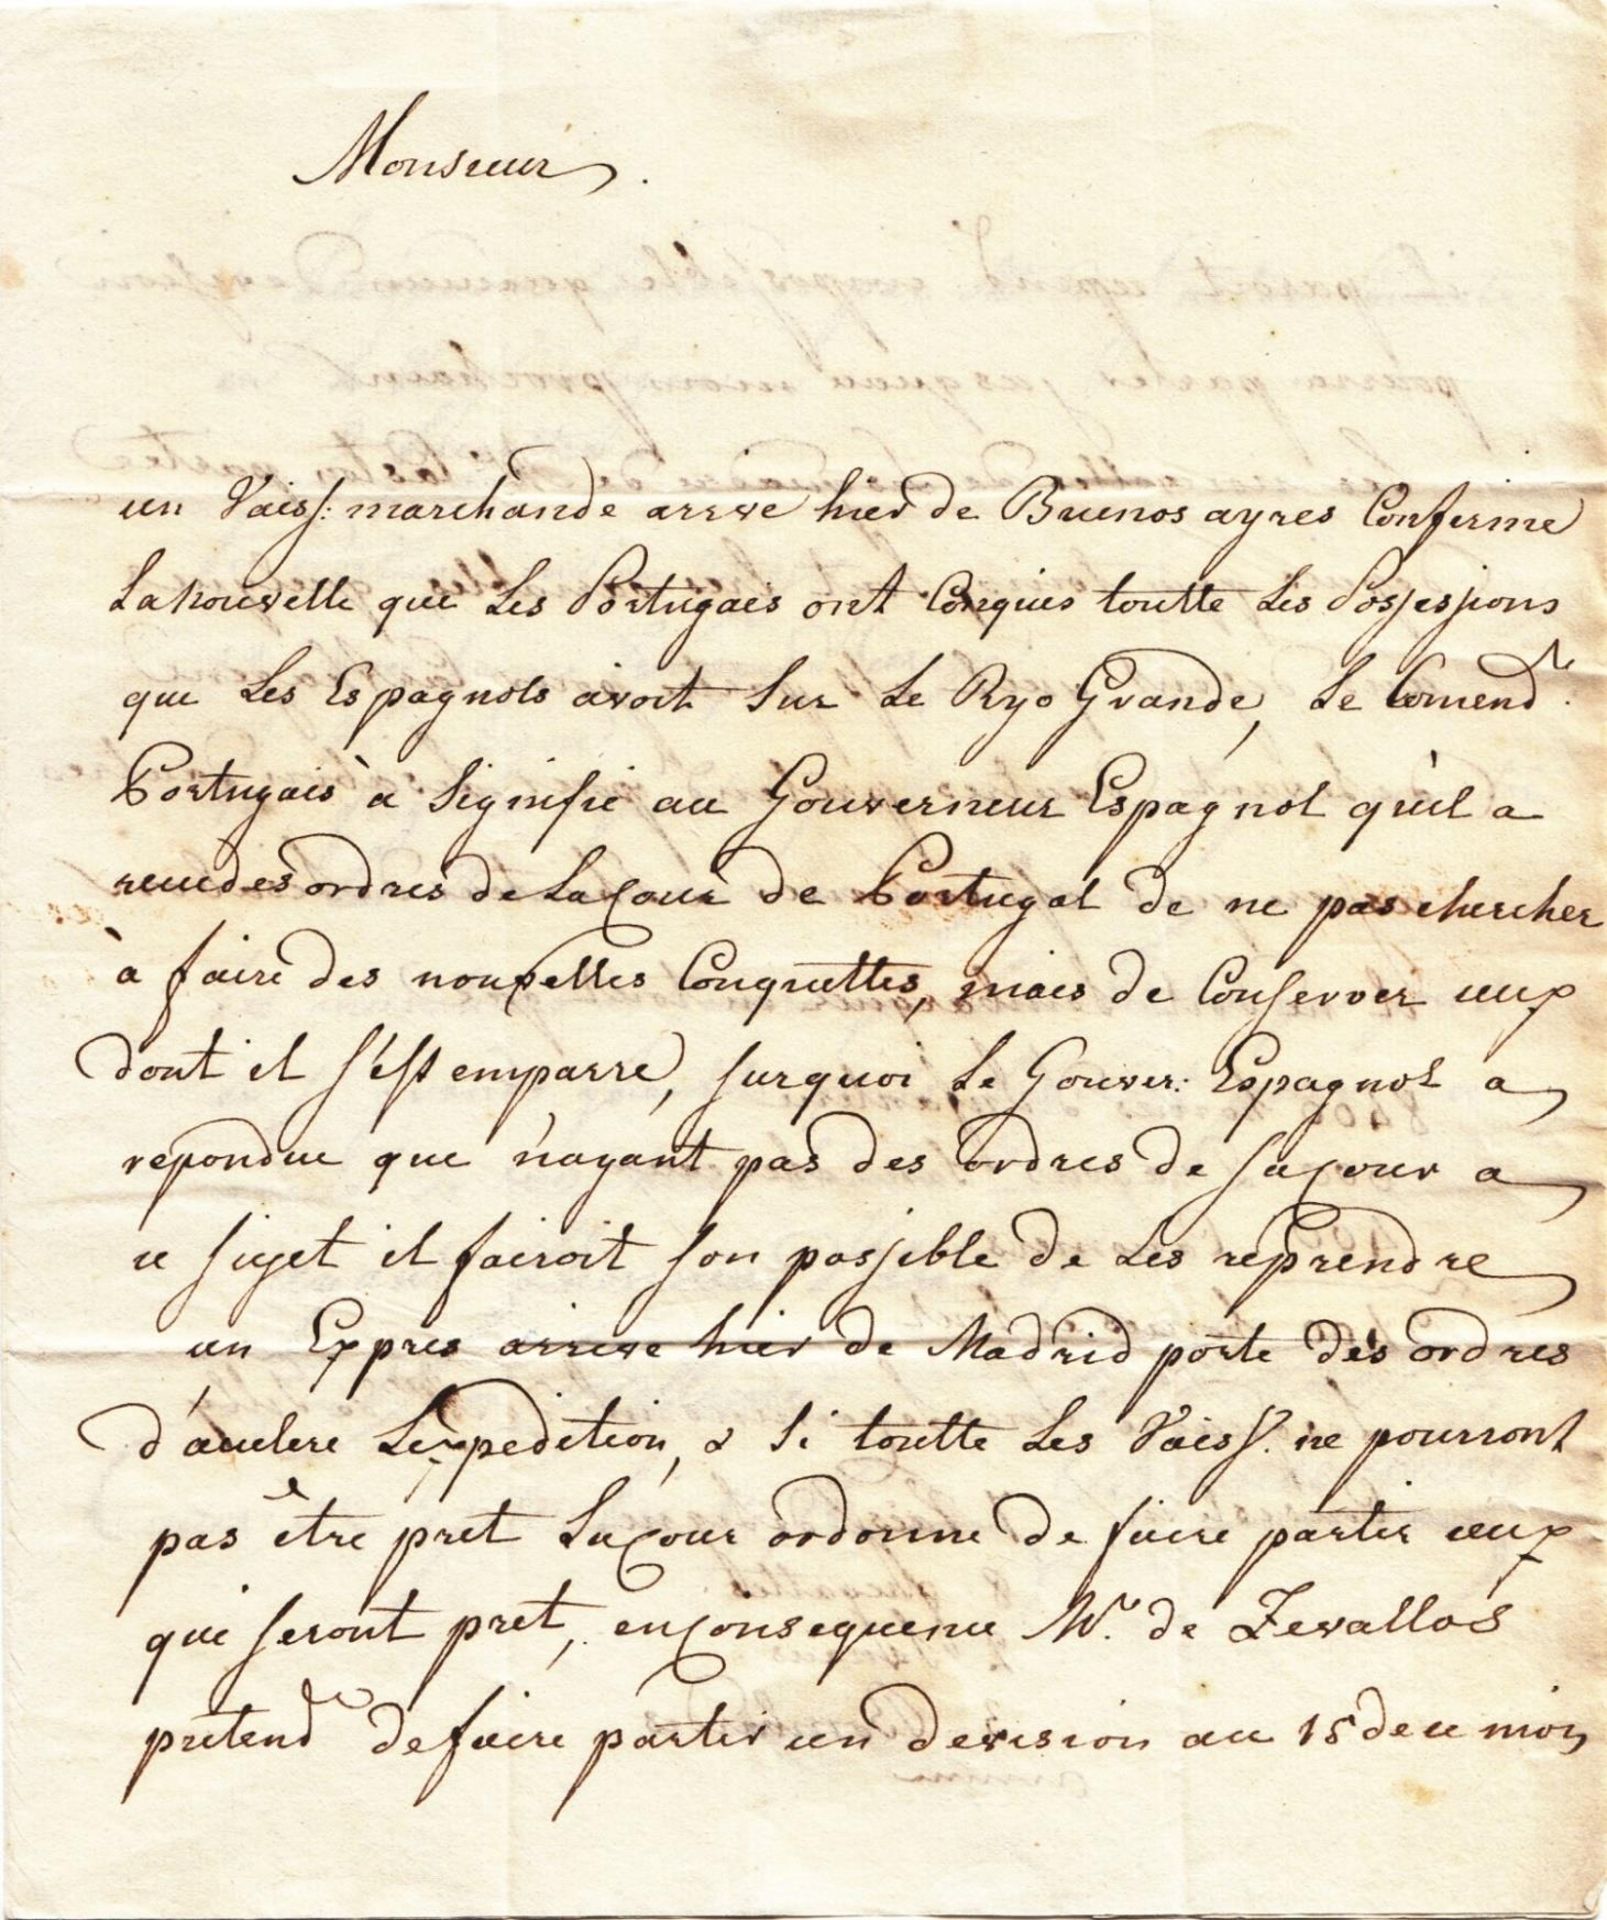 Monsieur.
un Vaiss: marchande arrive hier de Buenos ayres Confirme
La nouvelle que Les Portugais ont Conquis toutte Les Possessions
que Les Espagnols avoit Sur Le Ryo Grande, Le Comend.r
Portugais à Signifie au Gouverneur Espagnol qu'il a
recu des ordres de La Cour de Portugal de ne pas chercher
à faire des nouvelles Conquettes, mais de Conserver ceux
dont il s'est emparre, surquoi Le Gouver: Espagnol a
repondue que n'ayant pas des ordres de sa Cour a
ce sujet il fairoit son possible de Les reprendre
un Expres arrive hier de Madrid porte des ordres
d'acelere Lexpedition, & Si toutte Les Vaiss. ne pourront
pas être pret La Cour ordonne de faire partir ceux
qui seront pret, en Consequence Mr. de Zevallos
pretend de faire partir un devision au 15 de ce mois